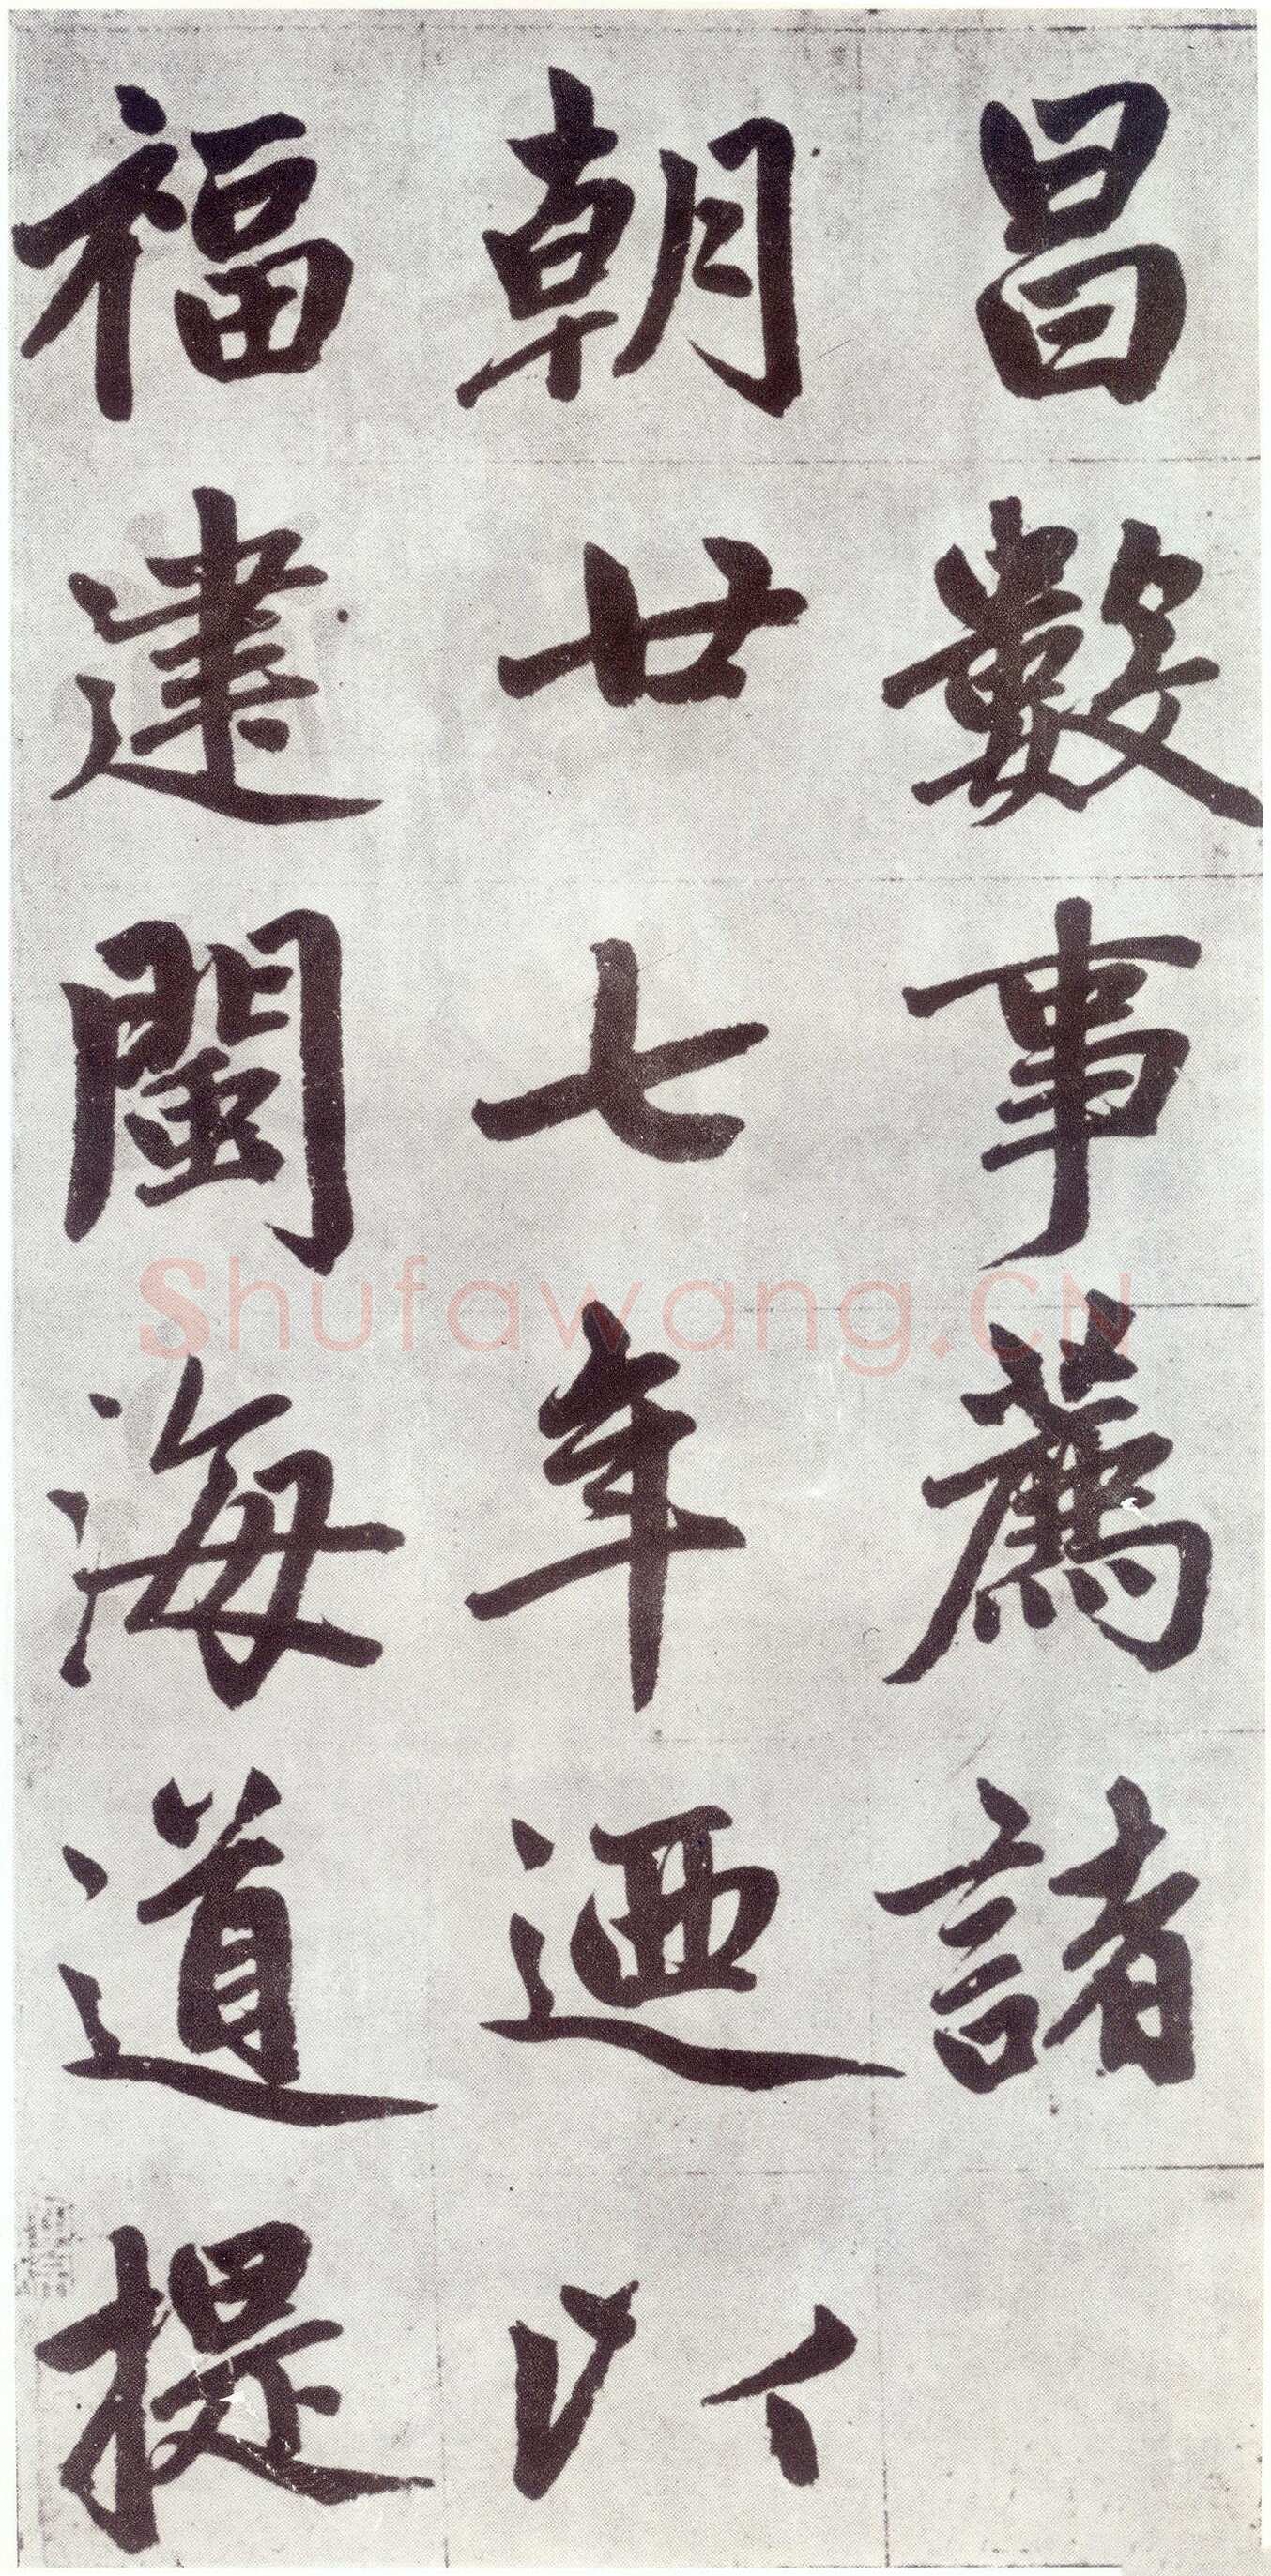 昌數事薦諸
朝廿七年迺以
福建閩海道提
Shufawang.CN